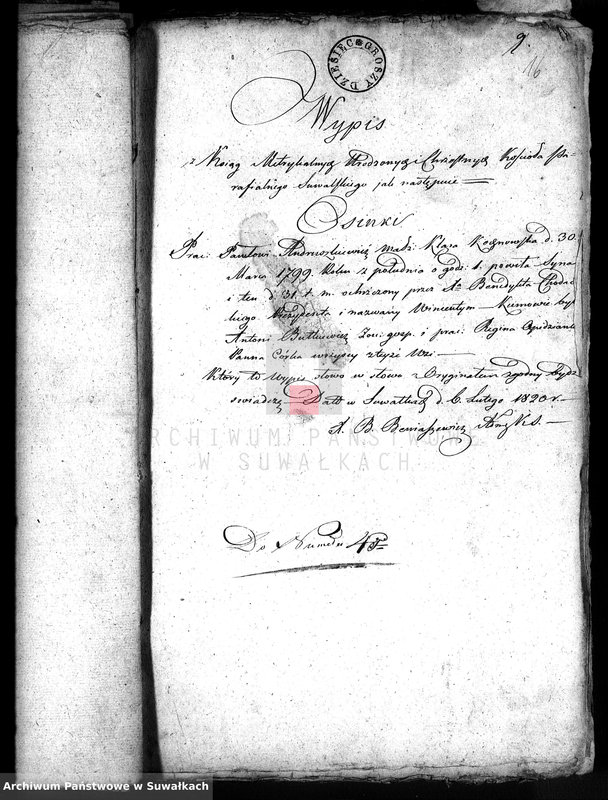 9.
16
DZIESIĘĆ GROSZY
Wypis
z Ksiąg Metrykalnych Urodzonych i Chrzestnych Kościoła Pa-
rafialnego Suwalskiego jak następuie
Osinki
Prac: Pawłowi małż: Klara d. 30
Marca 1799 Roku z południa o godz: 1. powiła Syna
i ten d. 31. t. m. ochrzczony przez X. Benedykta
Prezydenta i nazwany Wincentym Kumowie byli
Antoni Butkiewicz gosp. i prac: Regina
Panna Córka wszyscy z teyże Wsi
Który to Wypis słowo w słowo z Oryginałem zgodny bydź
świadczę Datt w Suwałkach d. 6. Lutego 1820 r.
X. B.
Do Numeru 45
ARCHIWUM PAŃSTWOWE
W SUWAŁKACH
Archiwum Państwowe w Suwałkach